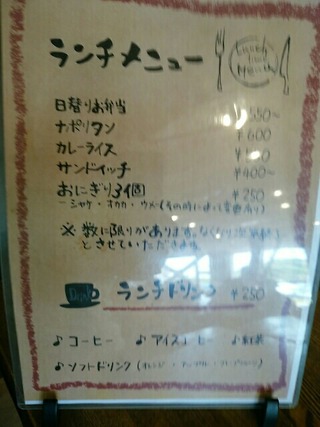 ランチメニュー
Lunch time Menu
日替りお弁当 ¥550~
ナポリタン ¥600
カレーライス
サンドイッチ ¥400~
おにぎり3個 ¥250
ーシャケ・オカカ・ウメ(その時によって変更あり)
※ 数に限りがあります。なくなり次第終了
とさせていただきます。
ランチドリンク ¥250
♪コーヒー ♪アイスコーヒー ♪紅茶
♪ソフトドリンク(オレンジ・アップル・グレープフルーツ)